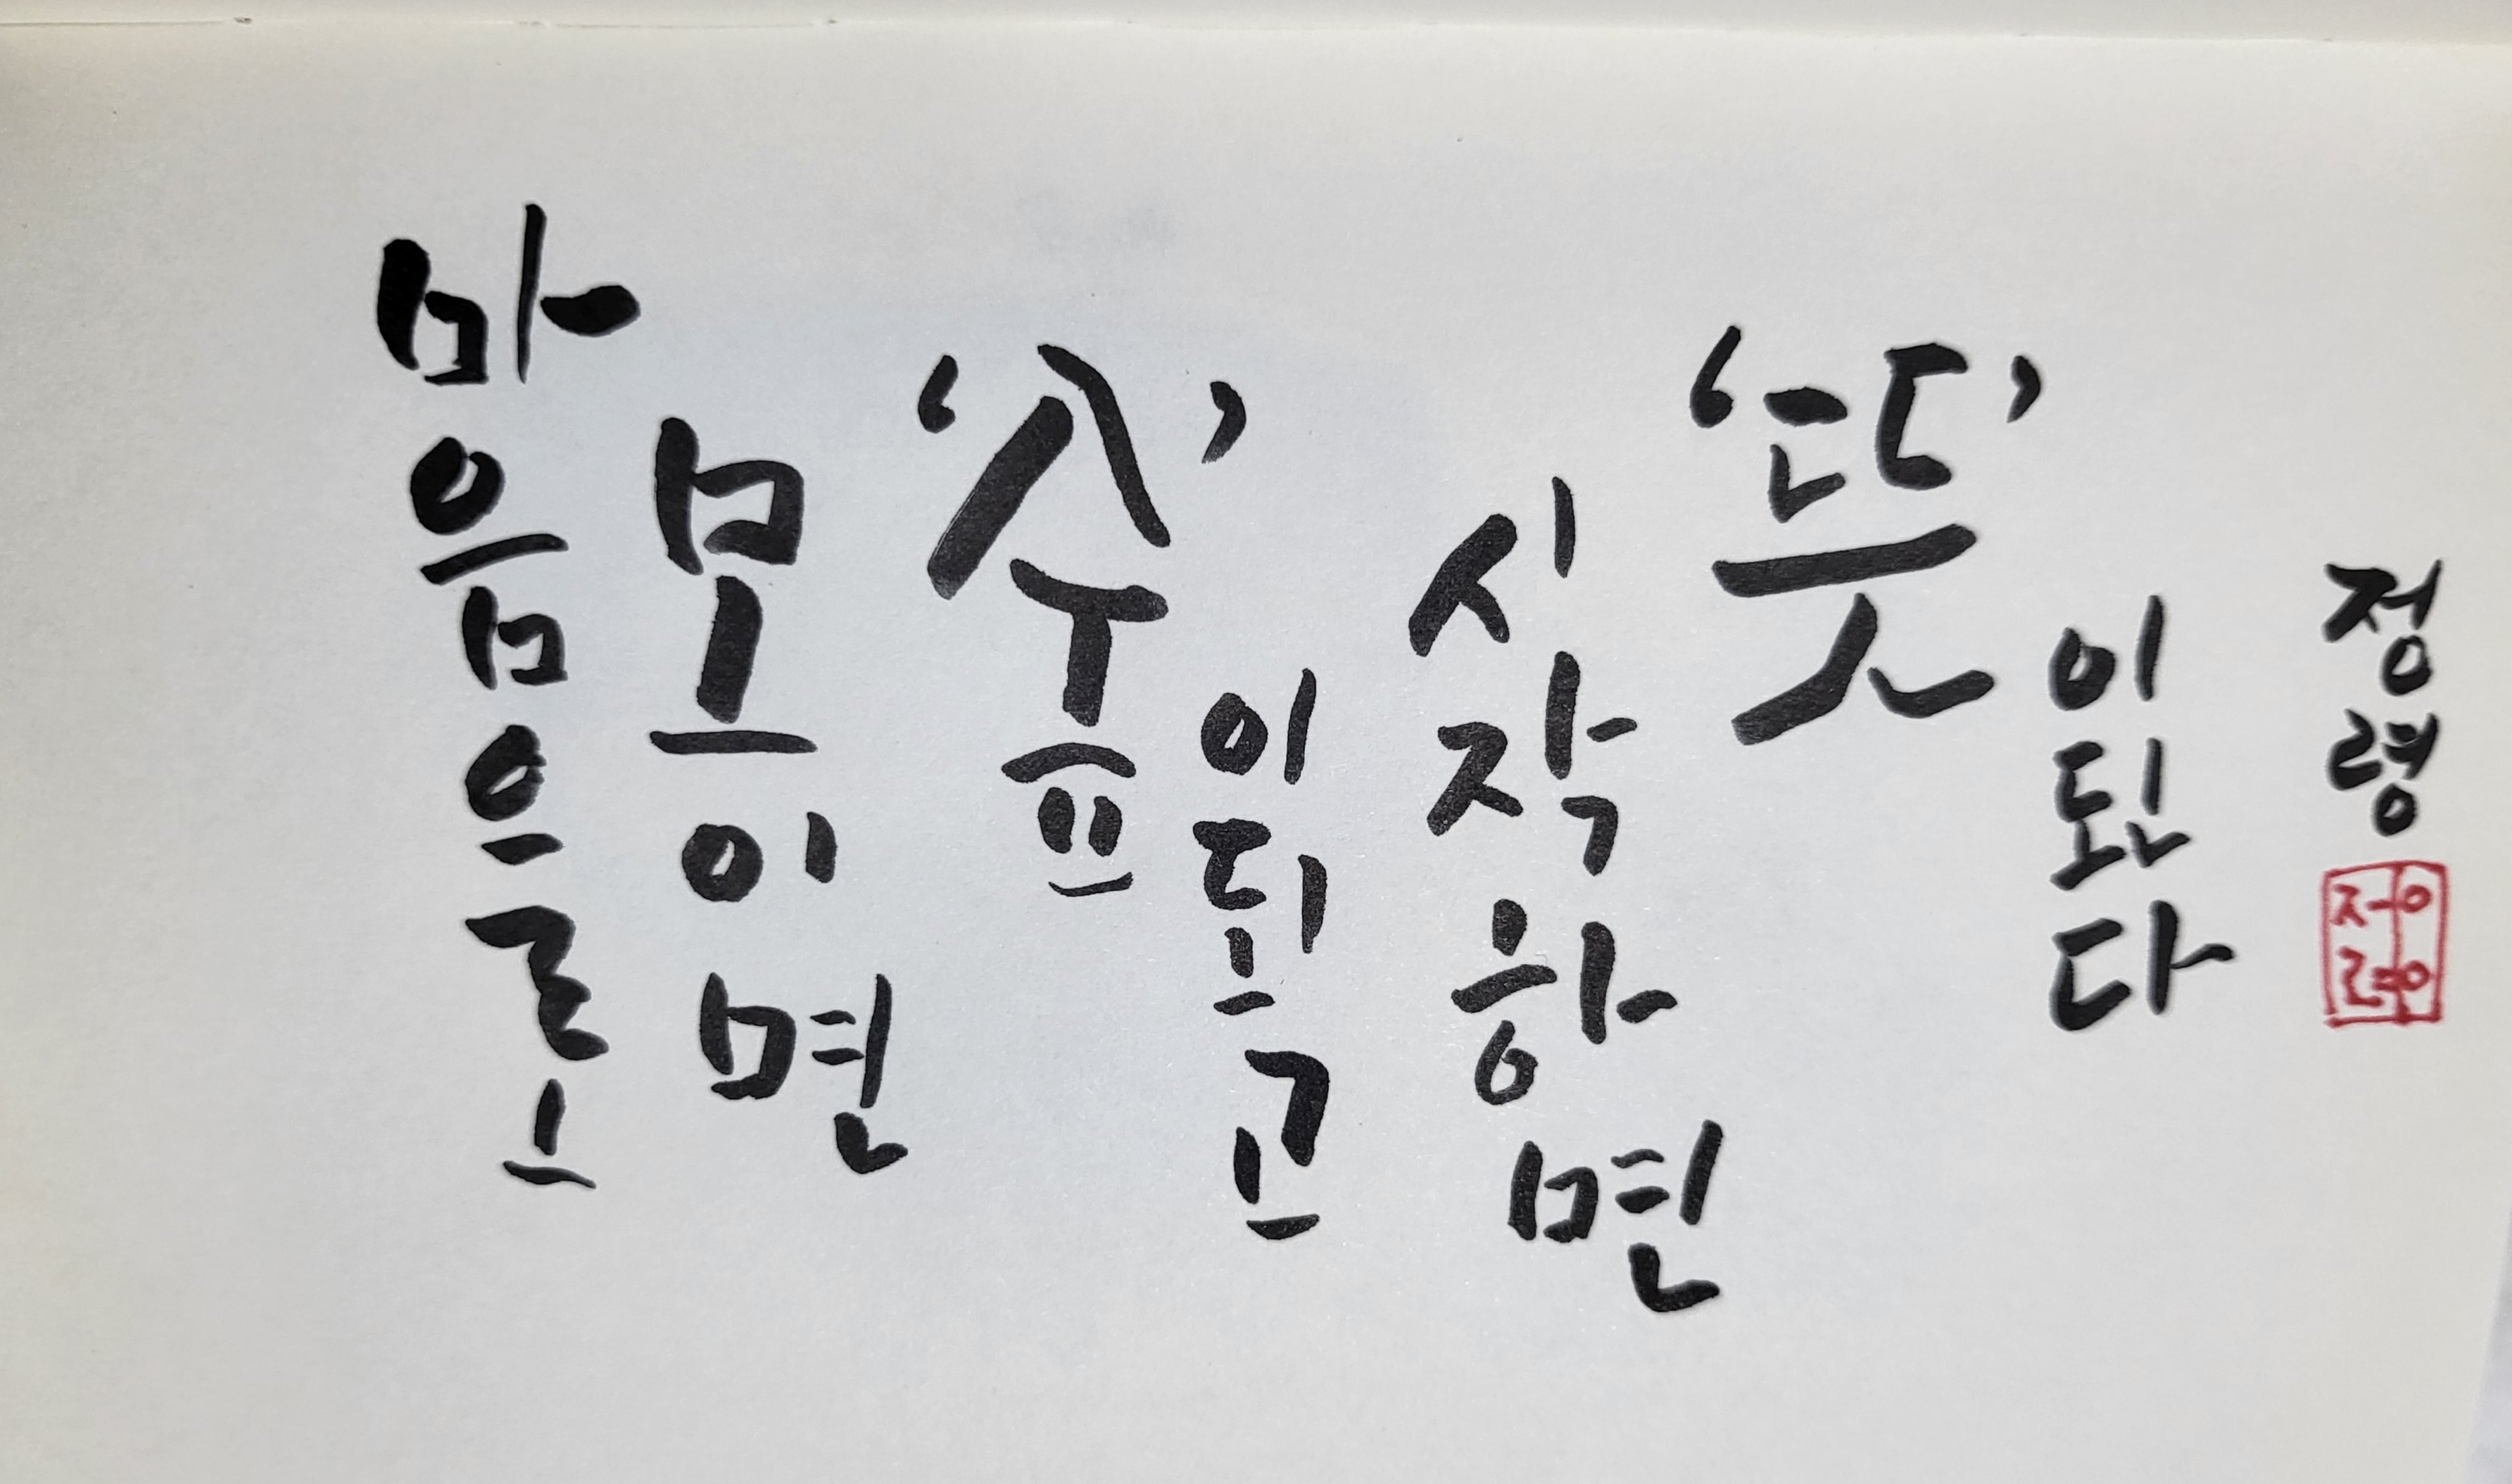 마음으로
모이면
‘숲’
이되고
시작하면
‘뜻’
이된다
정령
정령